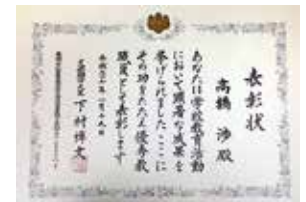 表彰状
高橋 渉 殿
あなたは学校教育活動
において顕著な成果を
挙げられました ここに
その功をたたえ優秀教
職員として表彰します
文部科学大臣 下村博文